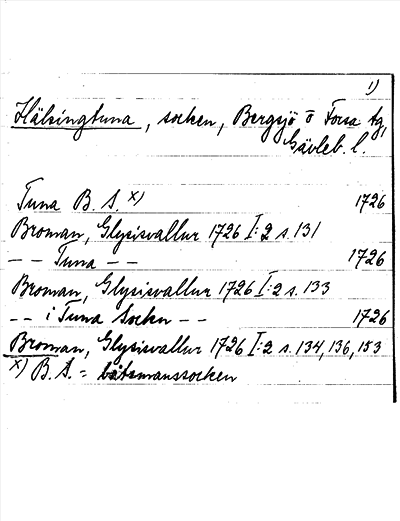 1)
Hälsingtuna, socken, Bergsjö o Forsa tg,
Gävleb. l.
Tuna B. S. x) 1726
Broman, Glysisvallur 1726 I:2 s. 131
-- Tuna -- 1726
Broman, Glysisvallur 1726 I:2 s. 133
-- i Tuna Sockn -- 1726
Broman, Glysisvallur 1726 I:2 s. 134, 136, 153
x) B. S. = båtsmanssocken